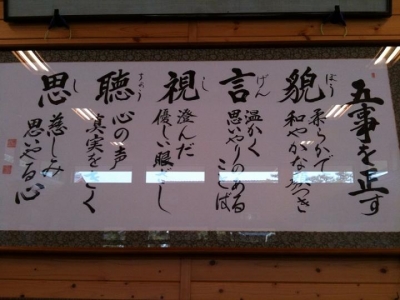 五事を正す
貌
ぼう
柔らいで
和やかな つき
言
げん
温かく
思いやりのある
ことば
視
し
澄んだ
優しい眼ざし
聽
ちょう
心の声
真実をきく
思
し
慈しみ
思いやる心